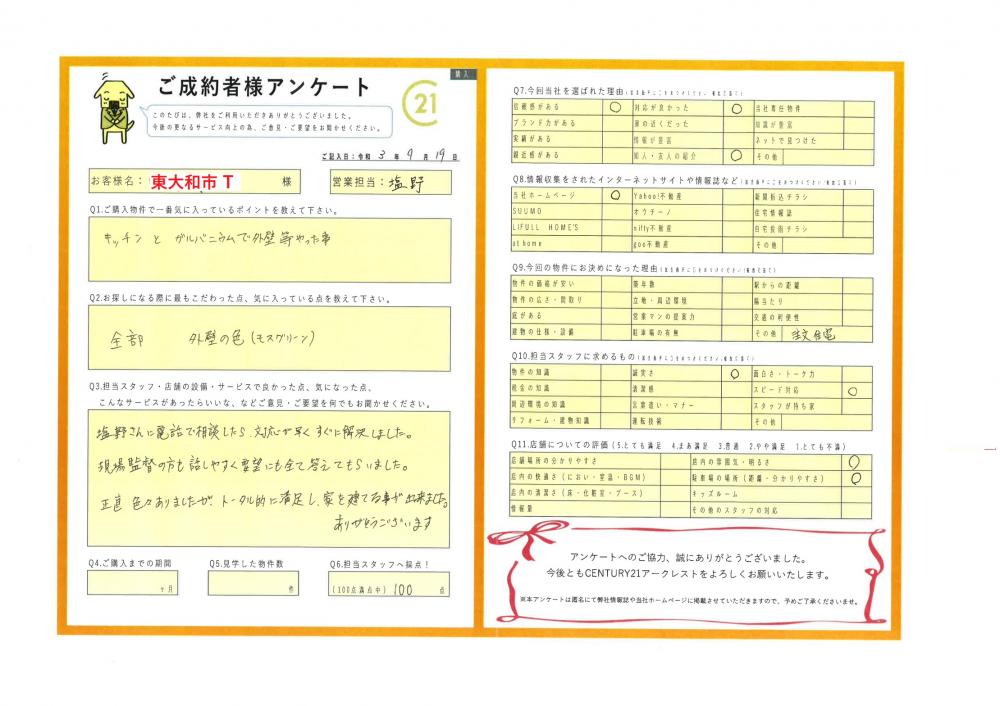 購入
ご成約者様アンケート
21
このたびは、弊社をご利用いただきありがとうございました。
今後の更なるサービス向上の為、ご意見・ご要望をお聞かせください。
ご記入日：令和 3 年 9 月 19 日
お客様名： 東大和市 T 様
営業担当： 塩野
Q1.ご購入物件で一番気に入っているポイントを教えて下さい。
キッチン と ガルバニウムで外壁等やった事
Q2.お探しになる際に最もこだわった点、気に入っている点を教えて下さい。
全部 外壁の色(モスグリーン)
Q3.担当スタッフ・店舗の設備・サービスで良かった点、気になった点、
こんなサービスがあったらいいな、などご意見・ご要望を何でもお聞かせください。
塩野さんに電話で相談したら、対応が早くすぐに解決しました。
現場監督の方も話しやすく要望にも全て答えてもらいました。
正直 色々ありましたが、トータル的に満足し、家を建てる事が出来ました。
ありがとうございます
Q4.ご購入までの期間
ヶ月
Q5.見学した物件数
件
Q6.担当スタッフへ採点！
(100点満点中) 100 点
Q7.今回当社を選ばれた理由
信頼感がある ○ 対応が良かった ○ 当社専任物件
ブランド力がある 家の近くだった 知識が豊富
実績がある 情報が豊富 ネットで見つけた
親近感がある 知人・友人の紹介 ○ その他
Q8.情報収集をされたインターネットサイトや情報誌など
当社ホームページ ○ Yahoo!不動産 新聞折込チラシ
SUUMO オウチーノ 住宅情報誌
LIFULL HOME'S nifty不動産 自宅投函チラシ
at home goo不動産 その他
Q9.今回の物件にお決めになった理由
物件の価格が安い 築年数 駅からの距離
物件の広さ・間取り 立地・周辺環境 陽当たり
庭がある 営業マンの提案力 交通の利便性
建物の仕様・設備 駐車場の有無 その他 注文住宅
Q10.担当スタッフに求めるもの
物件の知識 誠実さ ○ 面白さ・トーク力
税金の知識 清潔感 スピード対応 ○
周辺環境の知識 言葉遣い・マナー スタッフが持ち家
リフォーム・建物知識 運転技術 その他
Q11.店舗についての評価 (5.とても満足 4.まあ満足 3.普通 2.やや満足 1.とても不満)
店舗場所の分かりやすさ 店内の雰囲気・明るさ ○
店内の快適さ(におい・室温・BGM) 駐車場の場所(距離・分かりやすさ) ○
店内の清潔さ(床・化粧室・ブース) キッズルーム
情報量 その他のスタッフの対応
アンケートへのご協力、誠にありがとうございました。
今後ともCENTURY21アークレストをよろしくお願いいたします。
※本アンケートは匿名にて弊社情報誌や当社ホームページに掲載させていただきますので、予めご了承くださいませ。